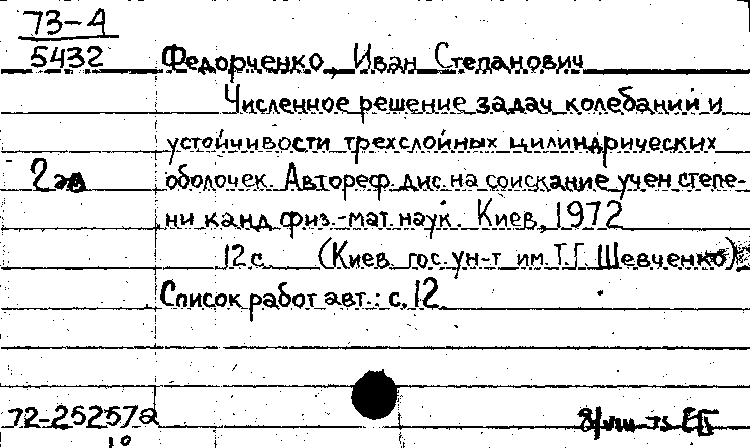 73-4
5432
Федорченко, Иван Степанович
Численное решение задач колебаний и
устойчивости трехслойных цилиндрических
2
оболочек. Автореф. дис. на соискание учен степе-
ни канд физ.-мат. наук. Киев, 1972
12 с. (Киев. гос. ун-т им. Т.Г. Шевченко)
Список работ авт.: с. 12
72-25257а
1°